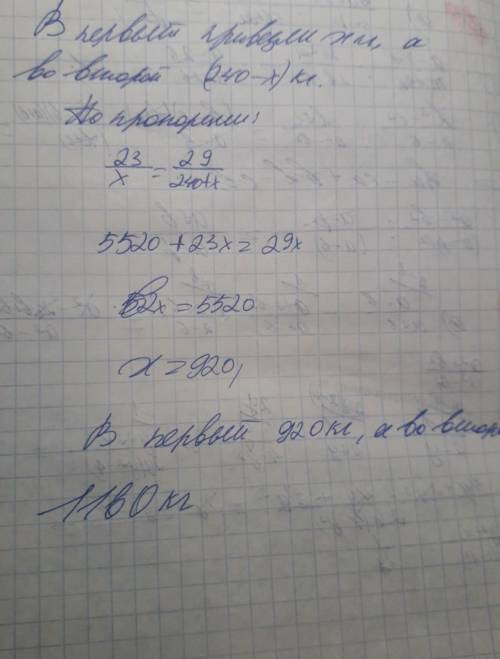 В первый привезли x кг, а
во второй (240-x) кг.
По пропорции:
23/x = 29/240+x
5520 + 23x = 29x
6x = 5520
x = 920,
В первый 920 кг, а во втор
1160 кг